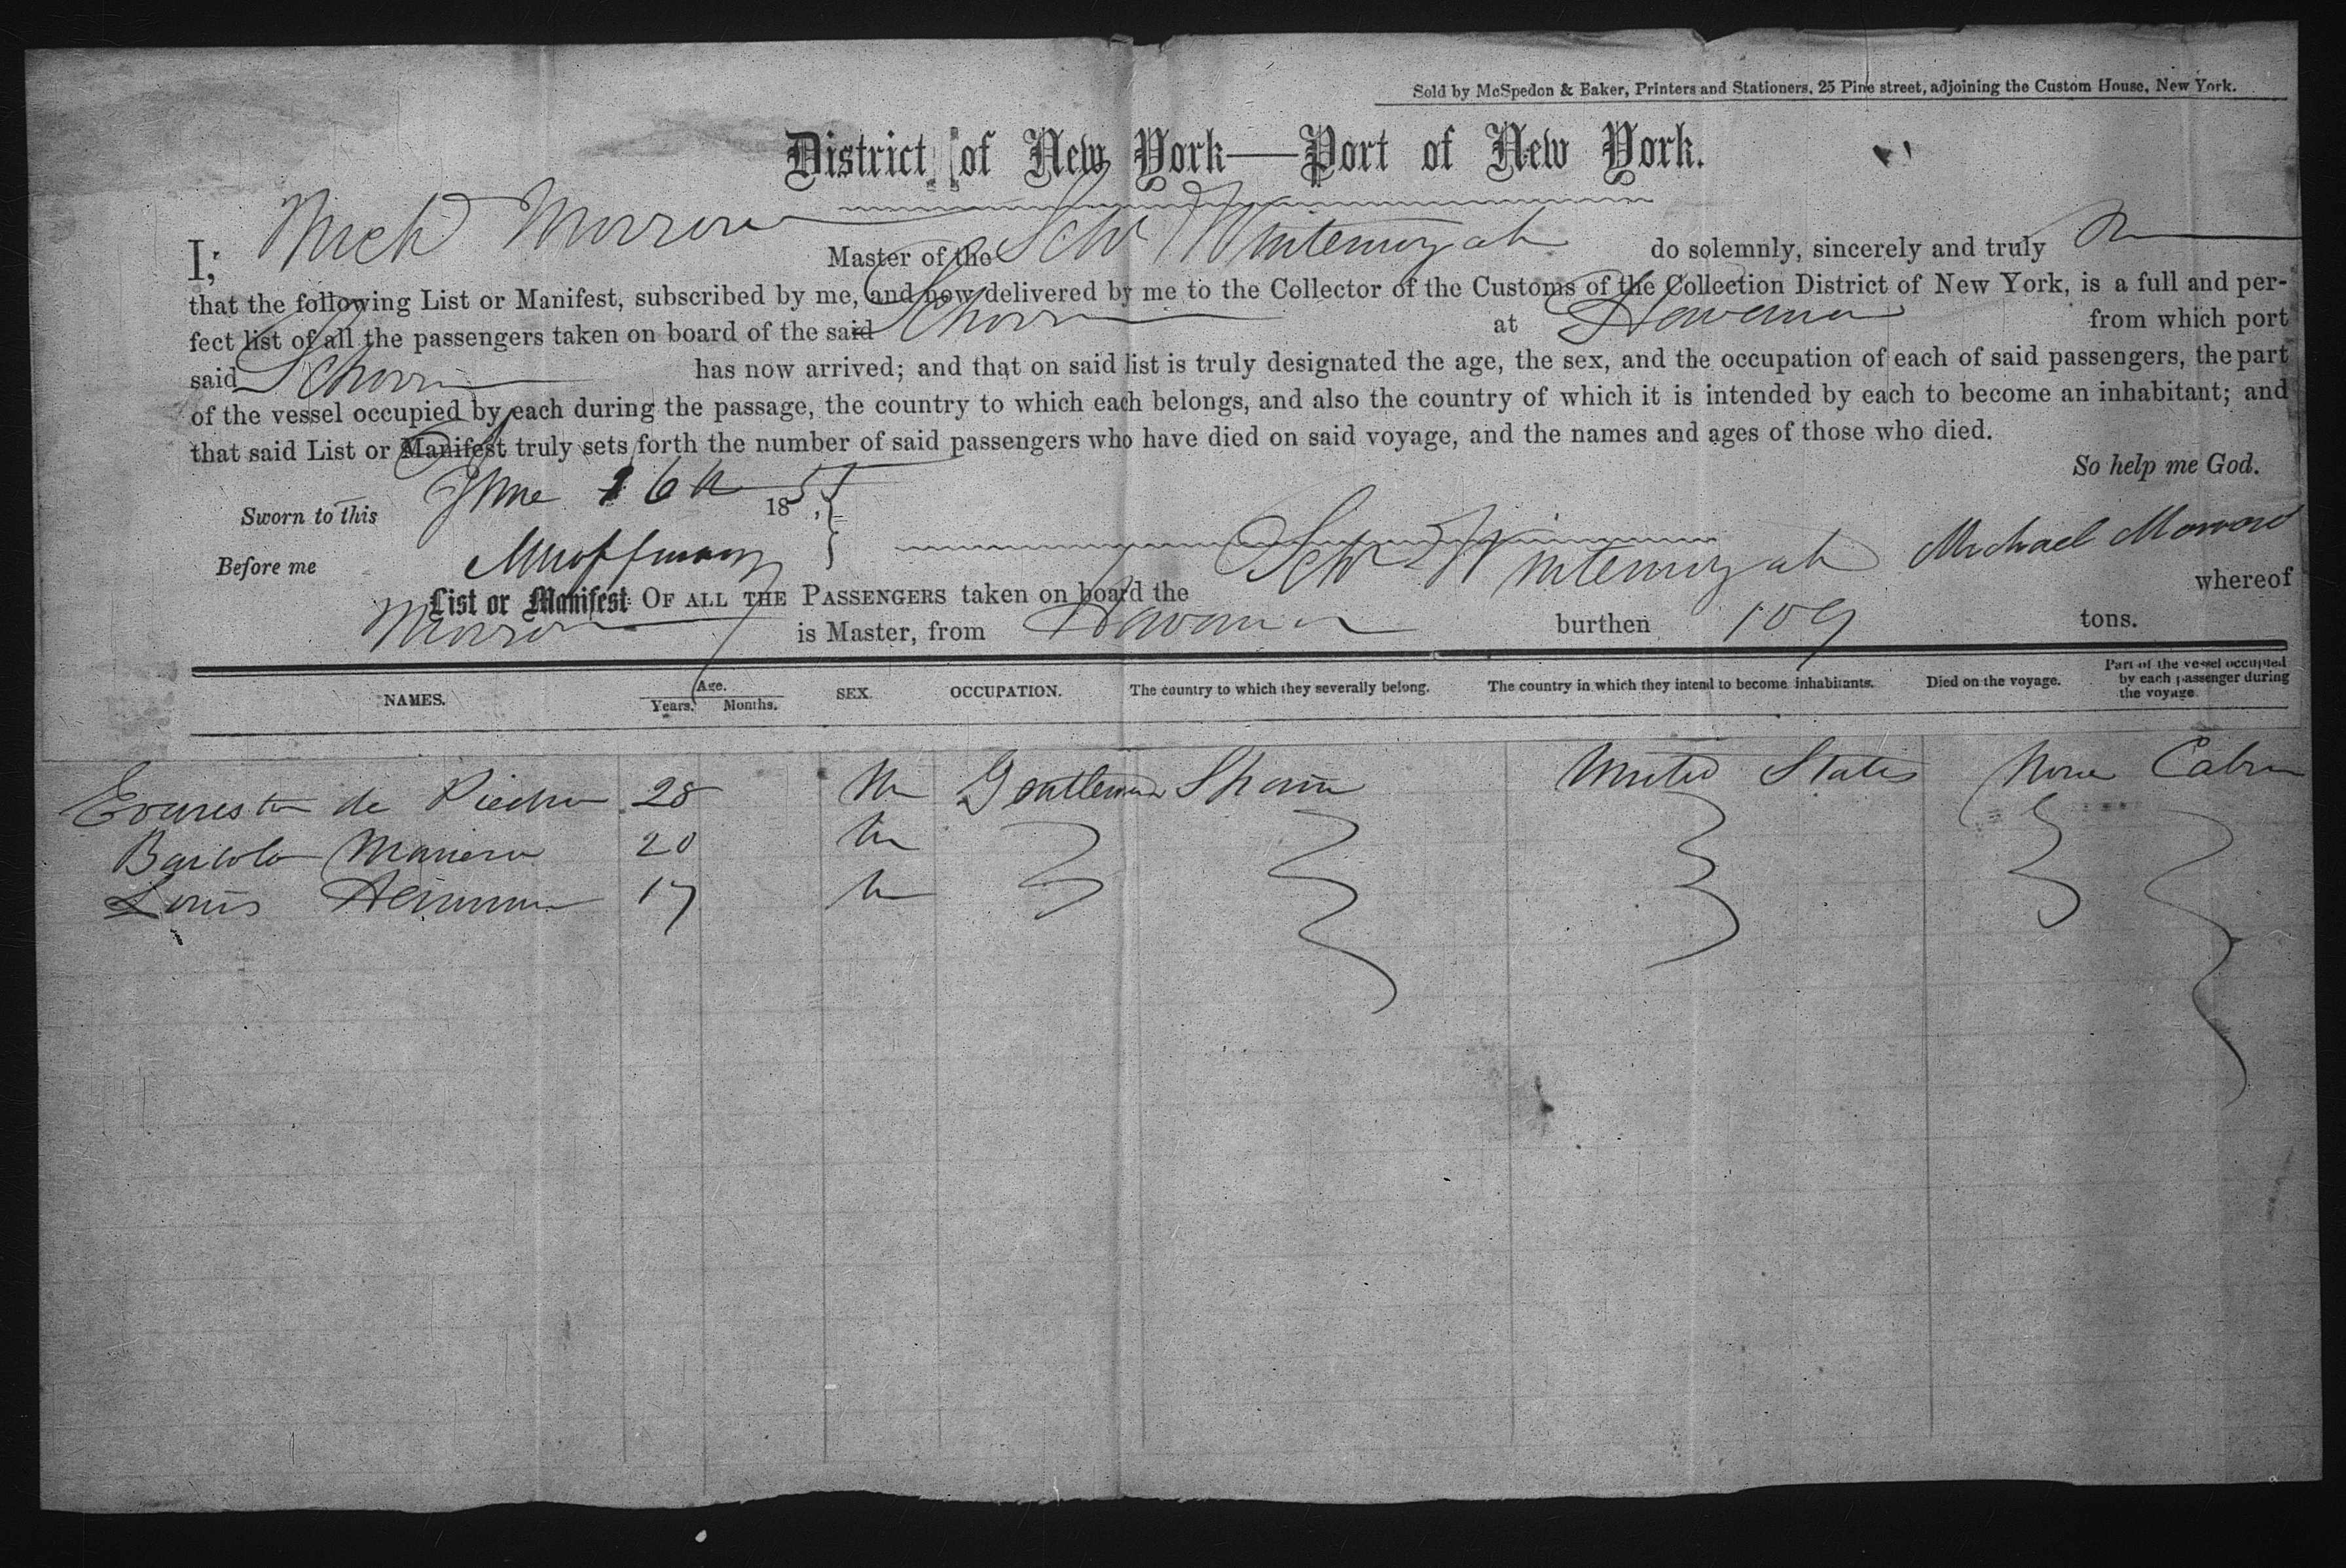 Sold by McSpedon & Baker, Printers and Stationers, 25 Pine street, adjoining the Custom House, New York.
District of New York—Port of New York.
I, Mich Morrow Master of the Schr Wintemoyah do solemnly, sincerely and truly
that the following List or Manifest, subscribed by me, and now delivered by me to the Collector of the Customs of the Collection District of New York, is a full and per-
fect list of all the passengers taken on board of the said Schoon at Havana from which port
said Schoon has now arrived; and that on said list is truly designated the age, the sex, and the occupation of each of said passengers, the part
of the vessel occupied by each during the passage, the country to which each belongs, and also the country of which it is intended by each to become an inhabitant; and
that said List or Manifest truly sets forth the number of said passengers who have died on said voyage, and the names and ages of those who died.
So help me God.
Sworn to this June 16th 1855,
Before me Michael Morrow
List or Manifest OF ALL THE PASSENGERS taken on board the Schr Wintemoyah whereof
Morrow is Master, from Havana burthen 109 tons.
NAMES. Age. Years. Months. SEX. OCCUPATION. The country to which they severally belong. The country in which they intend to become inhabitants. Died on the voyage. Part of the vessel occupied by each passenger during the voyage
de Piedra 28 M Gentleman Spain United States None Cabin
20 M
Louis 17 M